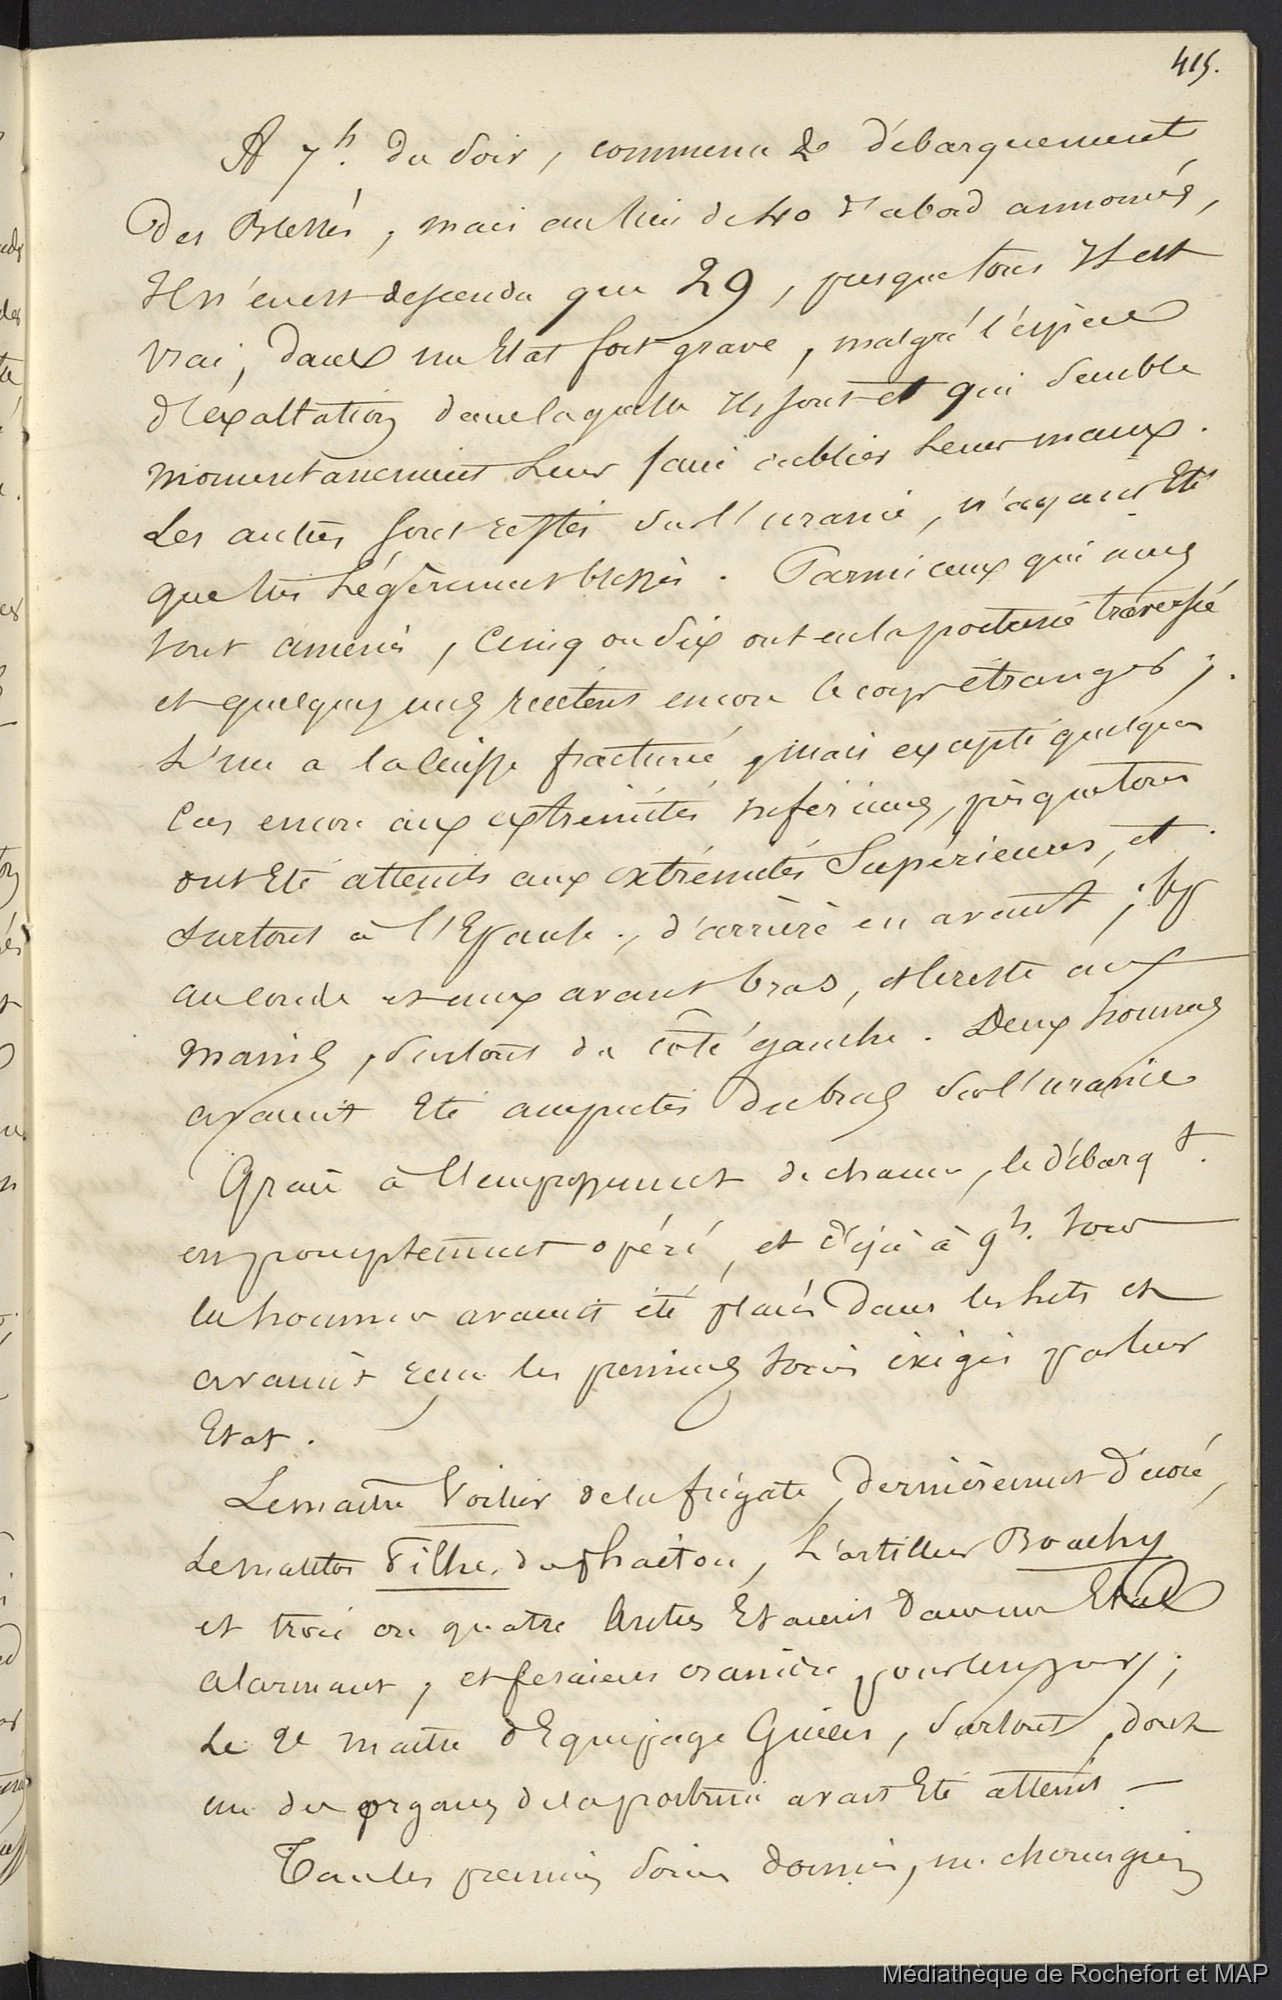 415.
A 7h. du Soir, commença le débarquement
Des Blessés, mais au lieu de 40 d'abord annoncés,
Il n'en est descendu que 29, presque tous Il est
vrai, dans un Etat fort grave, malgré l'espèce
d'exaltation dans laquelle Ils sont et qui Semble
momentanement Leur faire oublier Leurs maux.
Les autres sont restés sur l'uranie, n'ayant Eté
que très Légèrement blessés. Parmi ceux qui nous
sont amenés, Cinq ou Six ont eu la poitrine traversée
et quelques uns recèlent encore le corps étranger;
L'un a la cuisse fracturée, mais excepté quelques
Cas encore aux extrémités inférieures, presque tous
ont Eté atteints aux extrémités Supérieures, et
surtout à l'Epaule, d'arrière en avant;
au coude et aux avant bras, et le reste aux
mains, Surtout du côté gauche. Deux hommes
avaient Eté amputés du bras Sur l'uranie
Grace à l'empressement de chacun, le débarqt.
promptement opéré, et déjà à 9h. tous
les hommes avaient été placés Dans les lits et
avaient reçu les premiers soins exigés par leur
Etat.
Le maître Voilier de la frégate, dernièrement Décoré,
Le matelot Filhe, du phaéton, L'artilleur Boachy
et trois ou quatre Autres Etaient Dans un Etat
alarmant, et fesaient craindre pour leurs jours;
Le 2e maître d'Equipage Guieu, Surtout, dont
un des organes de la poitrine avait Eté atteint —
Tous les premiers Soins donnés, m. chirurgien
Médiathèque de Rochefort et MAP